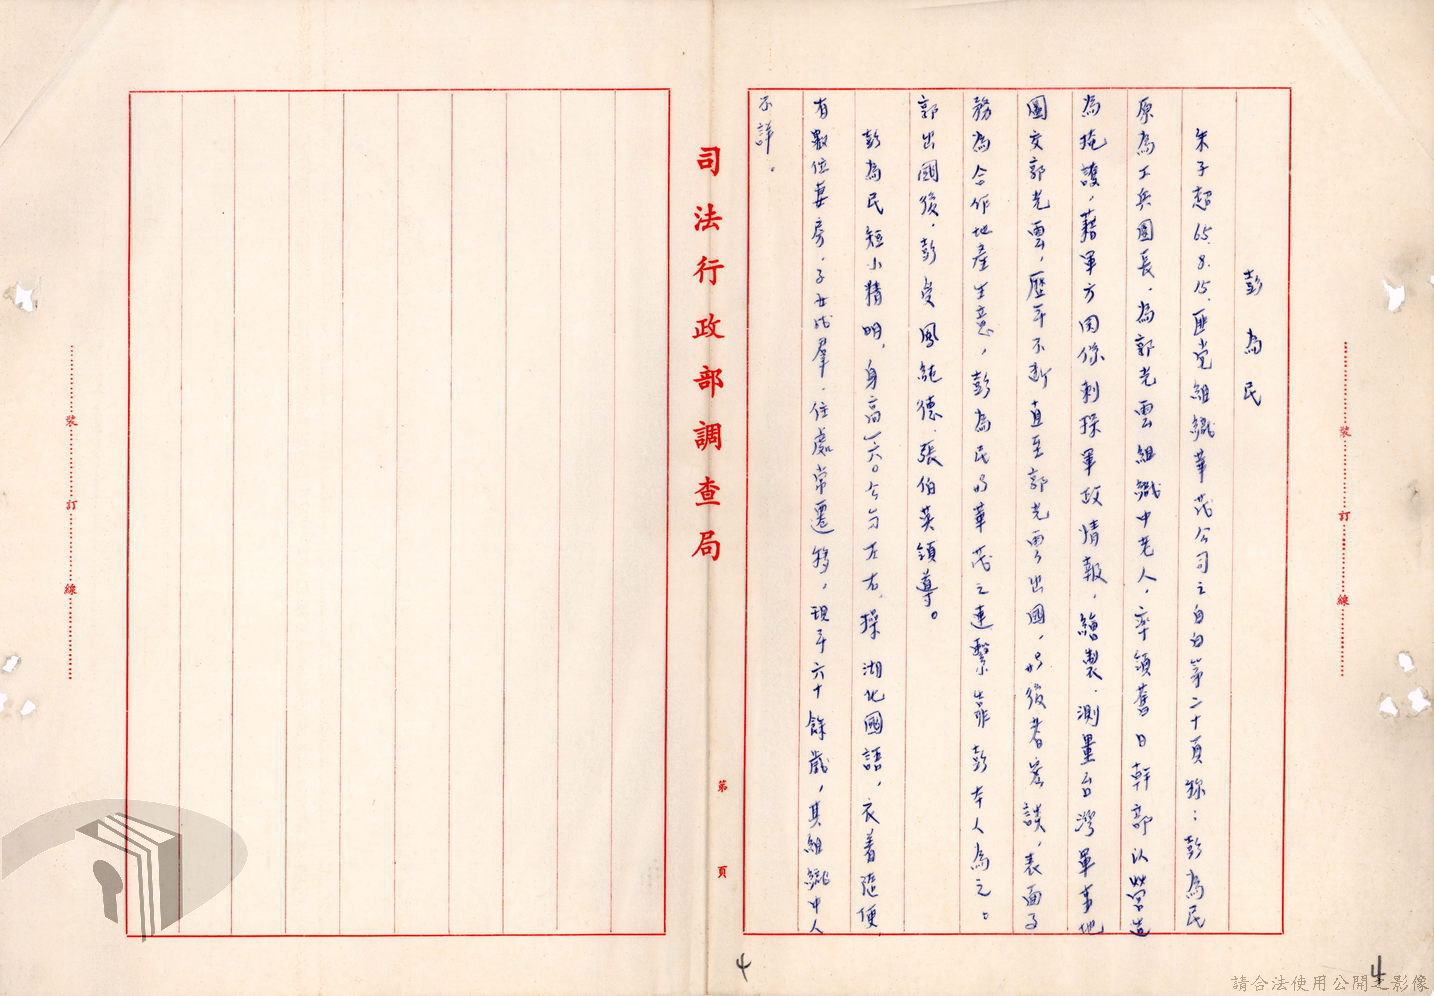 彭為民
朱子超65.8.15.匪党組織華茂公司之自白第二十頁錄：彭為民
原為工兵團長，為郭光雲組織中老人，率領舊日幹部以營造
為掩護，藉軍方関係刺探軍政情報，繪製、測量台灣軍事地
圖交郭光雲，歷年不断直至郭光雲出國，
務為合作地產生意，彭為民与華茂之連繫靠彭本人為之。
郭出國後，彭受鳳純德、張伯英領導。
彭為民短小精明，身高一六〇公分左右，操湖北國語，衣着隨便
有數位妻房，子女成羣，住處常遷移，現年六十餘歲，其組織中人
不詳。
司法行政部調查局
第 頁
裝訂線
裝訂線
4
4
請合法使用公開之影像